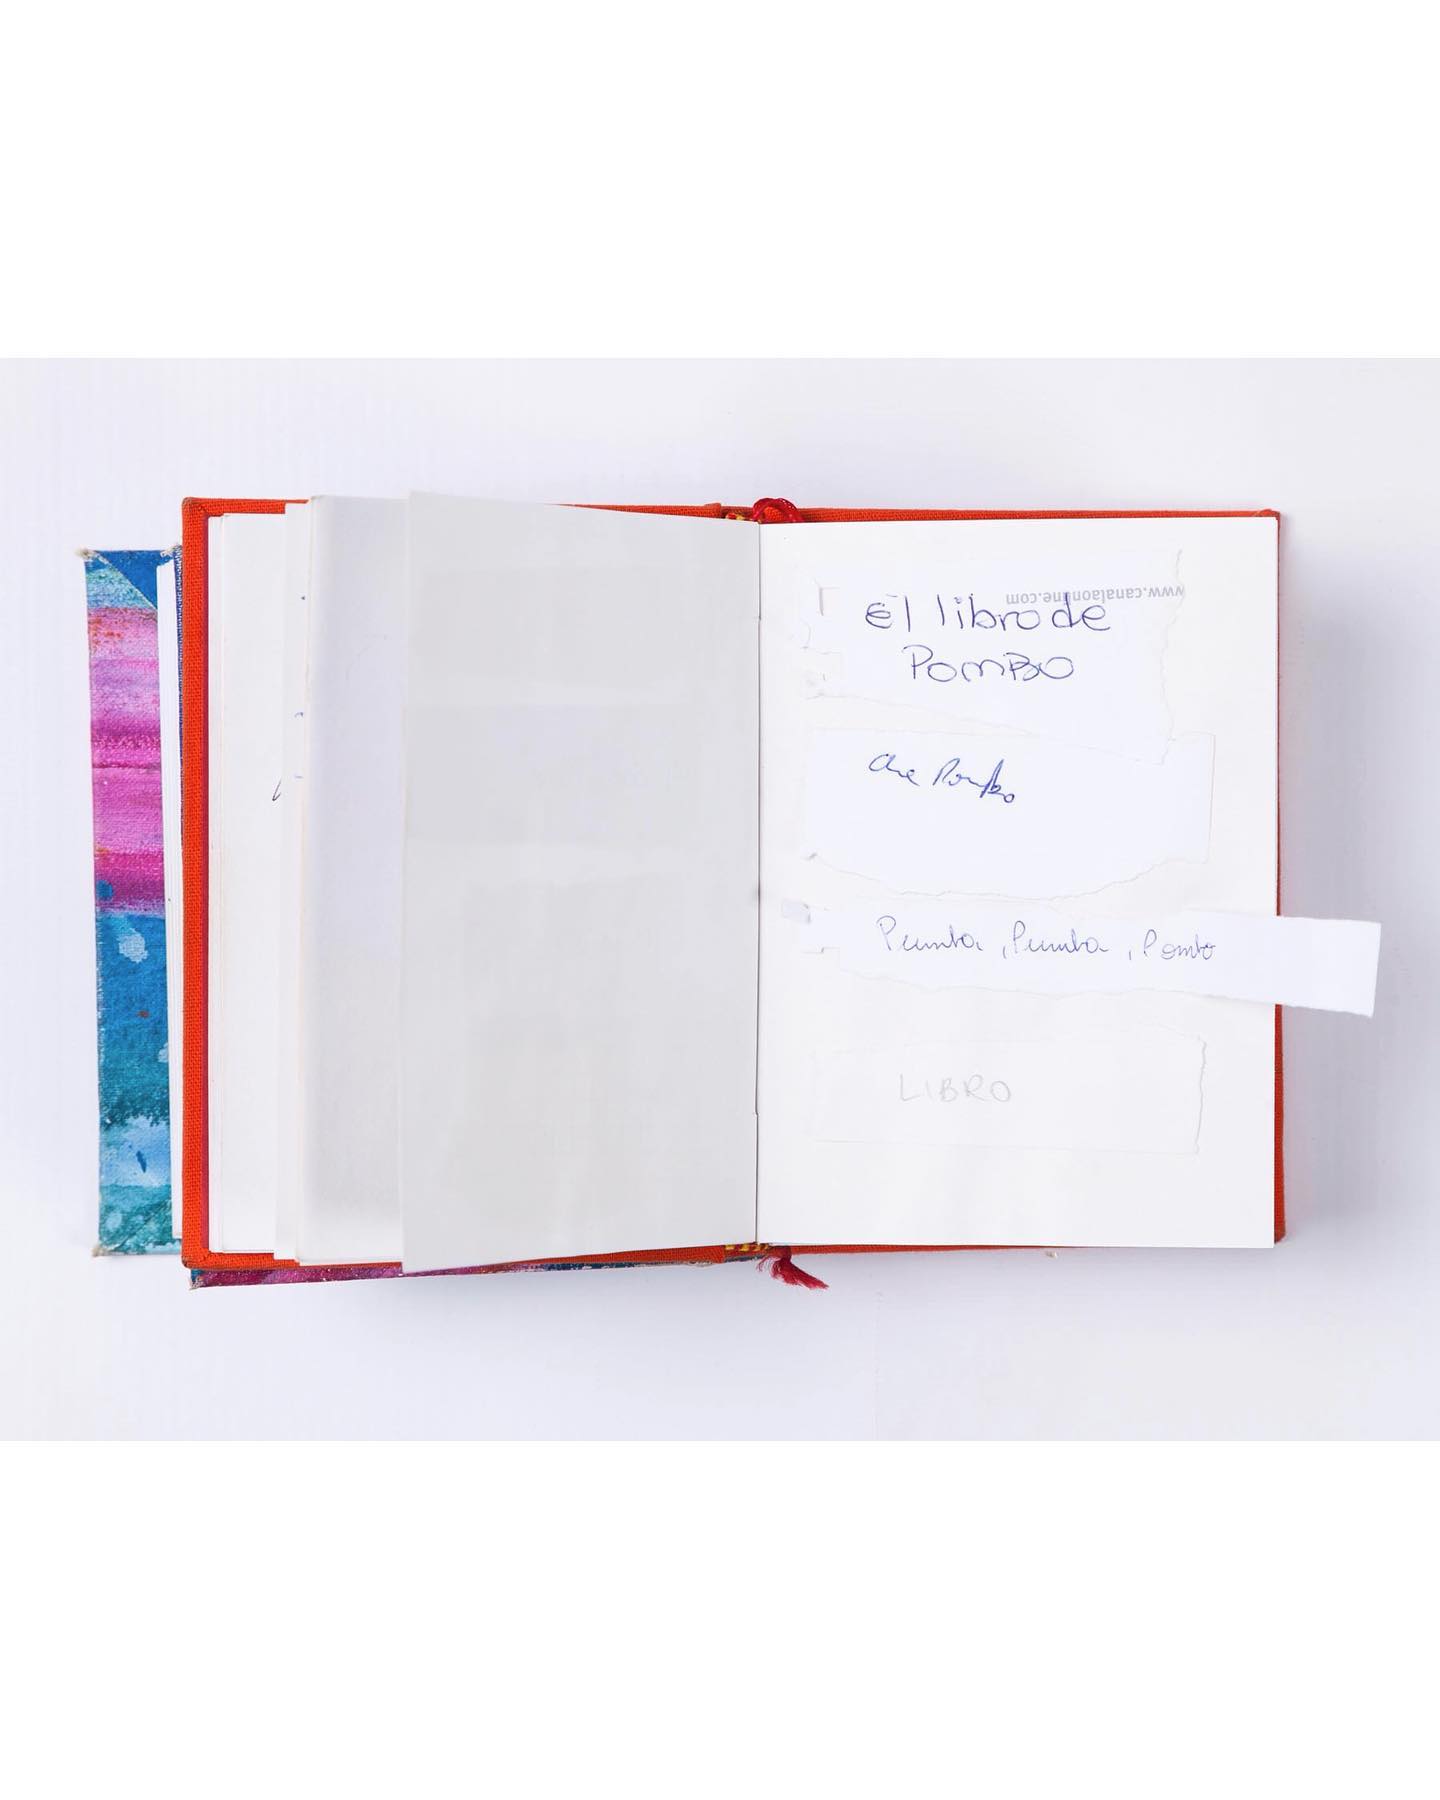 www.canalaonline.com
El libro de
POMBO
Che Pombo
Pumba, Pumba, Pombo
LIBRO